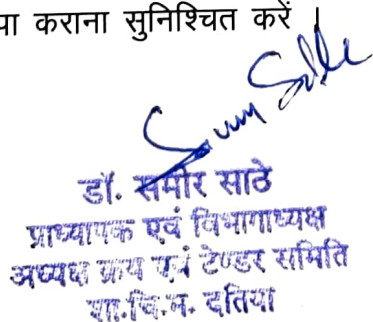 पा कराना सुनिश्चित करें ।
डॉ. समीर साठे
प्राध्यापक एवं विभागाध्यक्ष
अध्यक्ष क्रय एवं टेण्डर समिति
शा.चि.म. दतिया